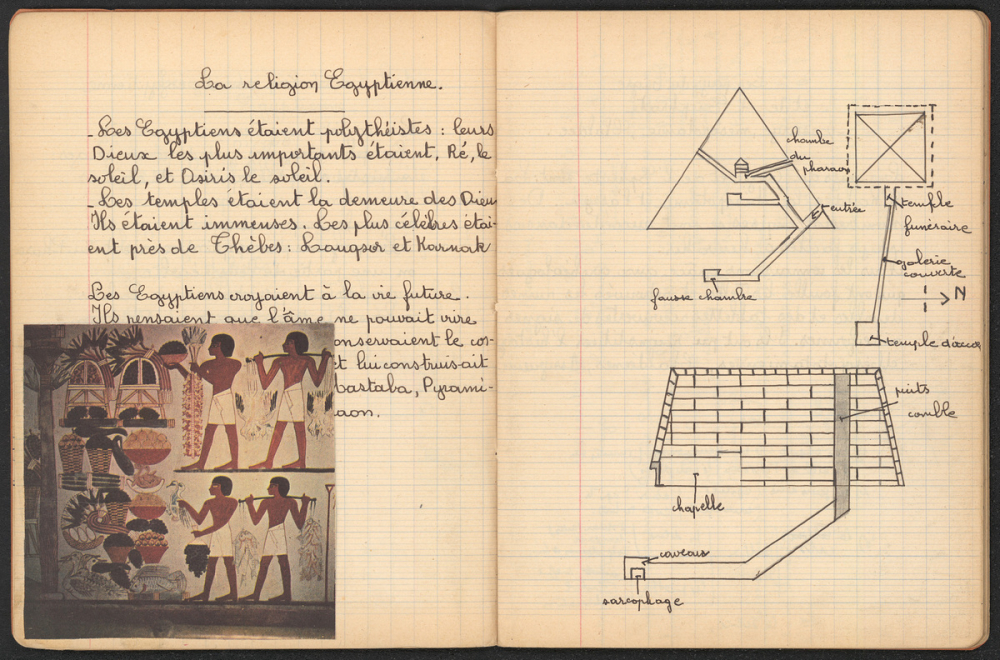 La religion Egyptienne.
- Les Egyptiens étaient polythéistes : leurs
Dieux les plus importants étaient, Ré, le
soleil, et Osiris le soleil.
- Les temples étaient la demeure des Dieu
Ils étaient immenses. Les plus célèbres étai-
ent près de Thèbes : Louqsor et Karnak
Les Egyptiens croyaient à la vie future.
Ils pensaient que l'âme ne pouvait vivre
onservaient le cor-
et lui construisait
bastaba, Pyrami-
aon.
chambe
du
pharaon
entrée
fausse chambre
temple
funéraire
galerie
couverte
N
temple d'accu
puits
comble
chapelle
caveaus
sarcophage